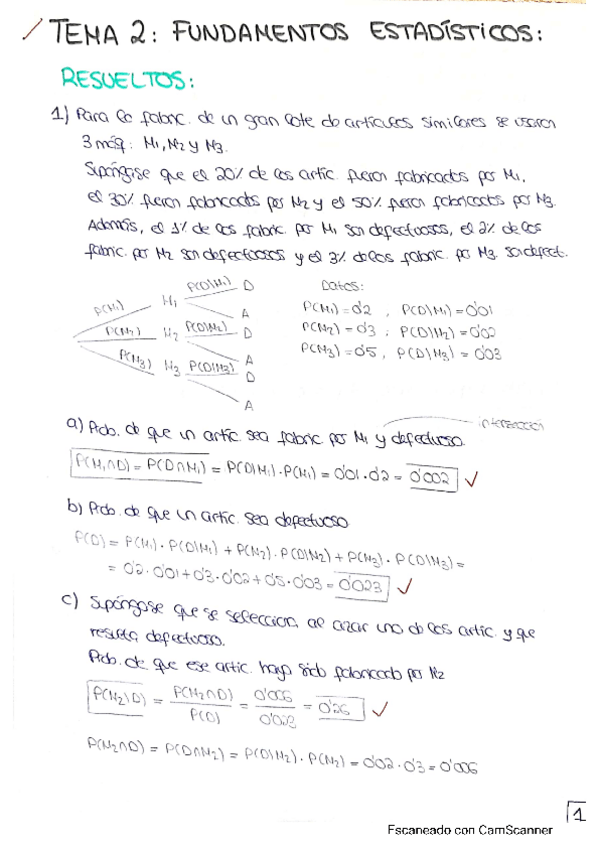 TEMA 2: FUNDAMENTOS ESTADÍSTICOS:
RESUELTOS:
1) Para la fabric. de un gran lote de artículos similares se usaron
3 máq: M1, M2 y M3.
Supóngase que el 20% de los artíc. fueron fabricados por M1,
el 30% fueron fabricados por M2 y el 50% fueron fabricados por M3.
Además, el 1% de los fabric. por M1 son defectuosos, el 2% de los
fabric. por M2 son defectuosos y el 3% de los fabric. por M3 son defect.
P(M1) M1 P(D|M1) D
A
P(M2) M2 P(D|M2) D
A
P(M3) M3 P(D|M3) D
A
Datos:
P(M1)=0'2 , P(D|M1)=0'01
P(M2)=0'3 , P(D|M2)=0'02
P(M3)=0'5 , P(D|M3)=0'03
a) Prob. de que un artíc. sea fabric. por M1 y defectuoso.
P(M1∩D) = P(D∩M1) = P(D|M1)·P(M1) = 0'01·0'2 = 0'002 ✓
b) Prob. de que un artíc. sea defectuoso
P(D) = P(M1)·P(D|M1) + P(M2)·P(D|M2) + P(M3)·P(D|M3) =
= 0'2·0'01 + 0'3·0'02 + 0'5·0'03 = 0'023 ✓
c) Supóngase que se selecciona al azar uno de los artíc. y que
resulta defectuoso.
Prob. de que ese artíc. haya sido fabricado por M2
P(M2|D) = P(M2∩D) / P(D) = 0'006 / 0'023 = 0'26 ✓
P(M2∩D) = P(D∩M2) = P(D|M2)·P(M2) = 0'02·0'3 = 0'006
1
Escaneado con CamScanner